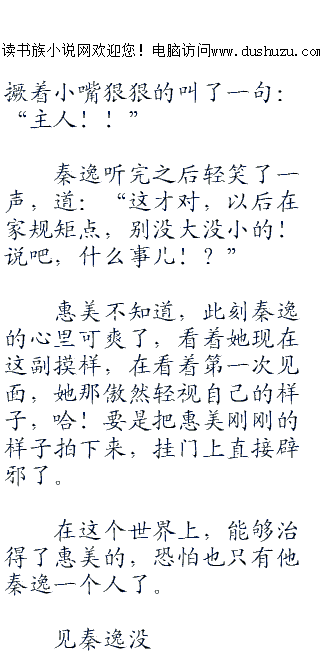 读书族小说网欢迎您！电脑访问www.dushuzu.com
撅着小嘴狠狠的叫了一句：
“主人！！”
秦逸听完之后轻笑了一
声，道：“这才对，以后在
家规矩点，别没大没小的！
说吧，什么事儿！？”
惠美不知道，此刻秦逸
的心里可爽了，看着她现在
这副摸样，在看着第一次见
面，她那傲然轻视自己的样
子，哈！要是把惠美刚刚的
样子拍下来，挂门上直接辟
邪了。
在这个世界上，能够治
得了惠美的，恐怕也只有他
秦逸一个人了。
见秦逸没